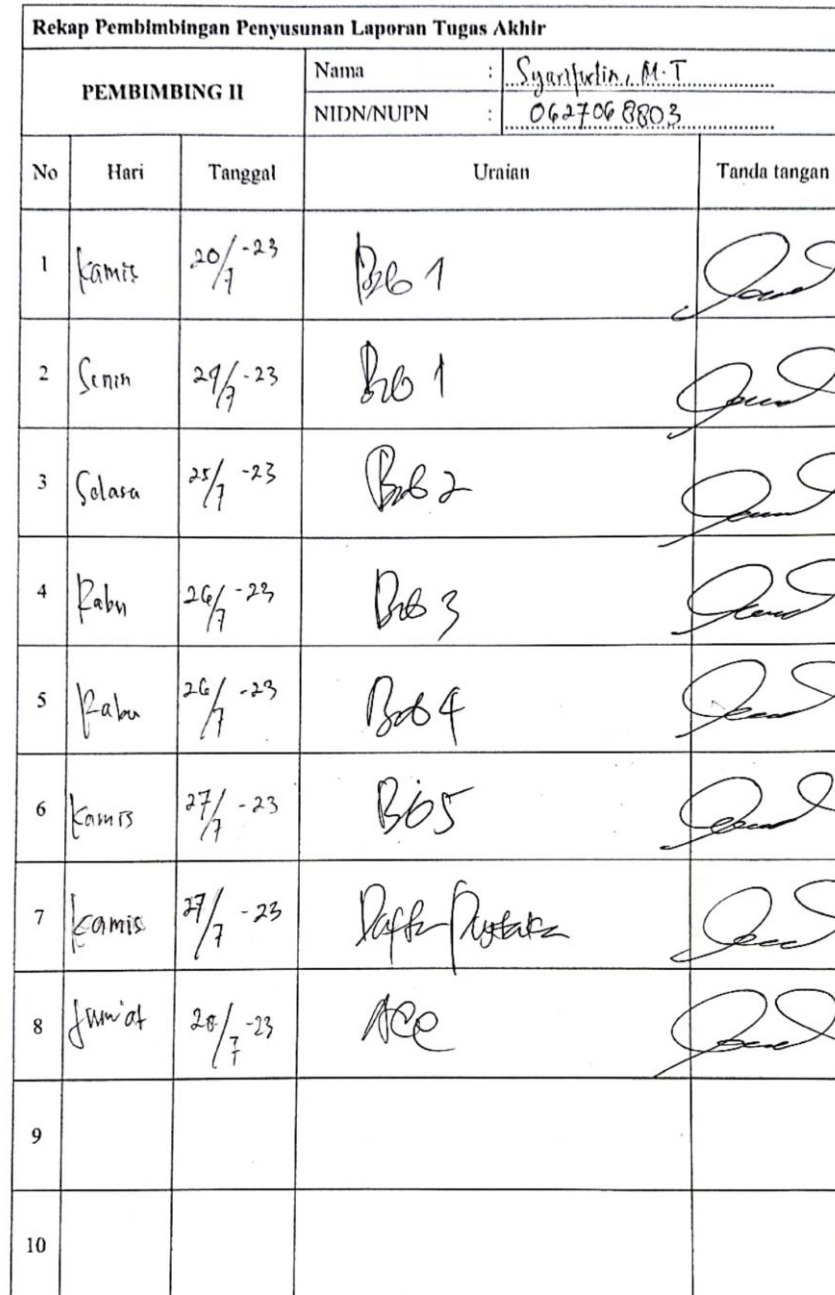 Rekap Pembimbingan Penyusunan Laporan Tugas Akhir
PEMBIMBING II
Nama : Syarifudin, M.T
NIDN/NUPN : 0627068803
No Hari Tanggal Uraian Tanda tangan
1 Kamis 20/7 -23 Bab 1
2 Senin 24/7 -23 Bab 1
3 Selasa 25/7 -23 Bab 2
4 Rabu 26/7 -23 Bab 3
5 Rabu 26/7 -23 Bab 4
6 Kamis 27/7 -23 Bab 5
7 Kamis 27/7 -23 Daftar Pustaka
8 Jum'at 28/7 -23 ACC
9
10